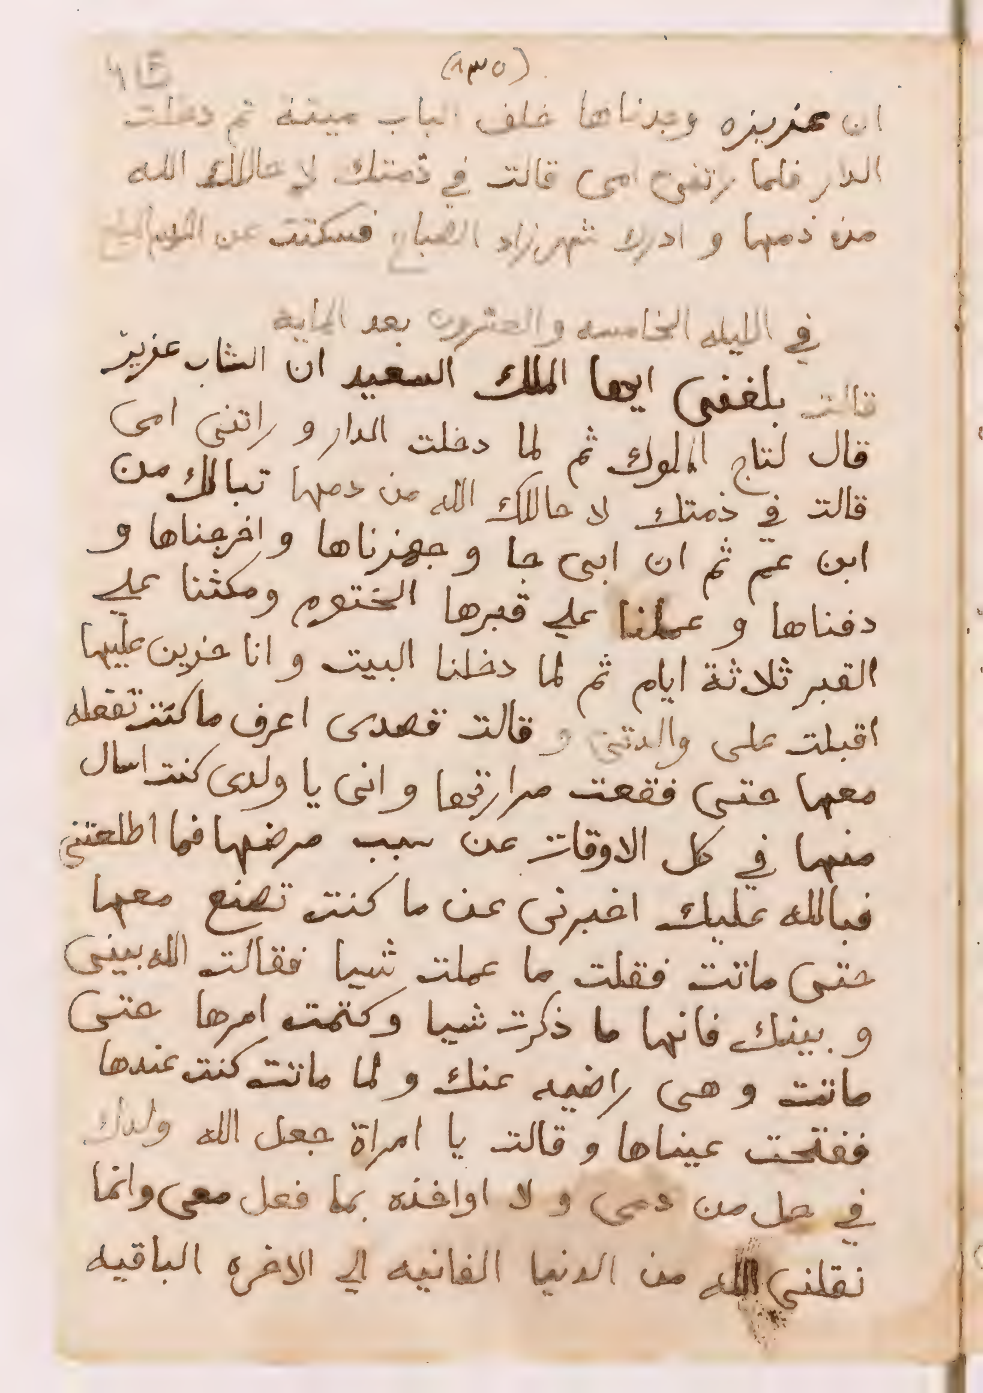 (٨٣٥)
ان عزيزه وجدناها خلف الباب ميتة ثم دخلت
الدار فلما راتنى امى قالت في ذمتك لا حاللك الله
من دمها و ادرك شهرزاد الصباح فسكتت عن الكلام المباح
في الليله الخامسه والعشرون بعد الماية
قالت بلغنى ايها الملك السعيد ان الشاب عزيز
قال لتاج الملوك ثم لما دخلت الدار و راتنى امى
قالت في ذمتك لا حاللك الله من دمها تبالك من
ابن عم ثم ان ابى جا و جهزناها و اخرجناها و
دفناها و عملنا علي قبرها الختوم ومكثنا علي
القبر ثلاثة ايام ثم لما دخلنا البيت و انا حزين عليها
اقبلت على والدتى و قالت قصدى اعرف ما كنت تفعله
معها حتى فقعت مرارتها و انى يا ولدى كنت اسال
منها في كل الاوقات عن سبب مرضها فما اطلعتنى
فبالله عليك اخبرنى عن ما كنت تصنع معها
حتى ماتت فقلت ما عملت شيا فقالت الله بينى
و بينك فانها ما ذكرت شيا و كتمت امرها حتى
ماتت و هى راضيه عنك و لما ماتت كنت عندها
ففتحت عيناها و قالت يا امراة جعل الله ولدك
في حل من دمى و لا اواخذه بما فعل معى وانما
نقلنى الله من الدنيا الفانيه الي الاخره الباقيه